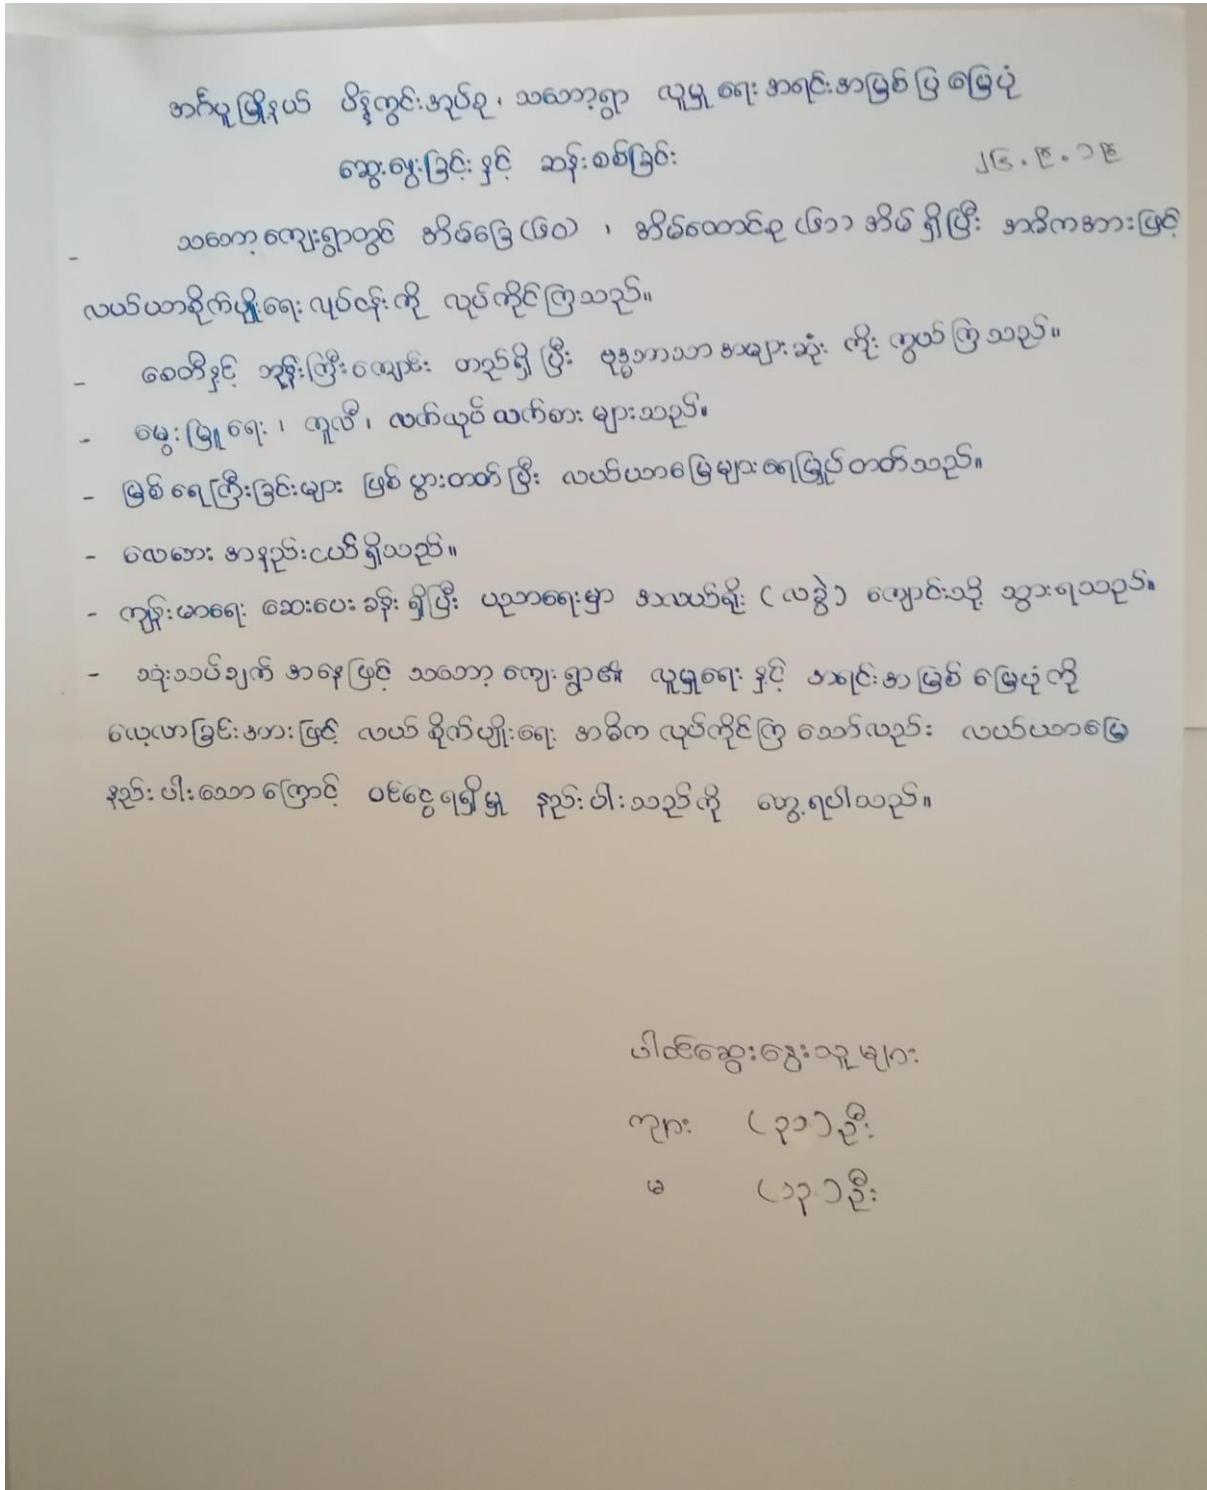 အင်္ဂပူမြို့နယ် ပိန္နဲကွင်းအုပ်စု၊ သဘော့ရွာ လူမှုရေးအရင်းအမြစ်ပြမြေပုံ
ဆွေးနွေးခြင်းနှင့် ဆန်းစစ်ခြင်း ၂၄.၉.၁၉
- သဘော့ကျေးရွာတွင် အိမ်ခြေ(၆၀) ၊ အိမ်ထောင်စု(၆၁)အိမ်ရှိပြီး အဓိကအားဖြင့်
လယ်ယာစိုက်ပျိုးရေးလုပ်ငန်းကို လုပ်ကိုင်ကြသည်။
- စေတီနှင့် ဘုန်းကြီးကျောင်း တည်ရှိပြီး ဗုဒ္ဓဘာသာအများဆုံး ကိုးကွယ်ကြသည်။
- မွေးမြူရေး၊ ကူလီ၊ လက်လုပ်လက်စားများသည်။
- မြစ်ရေကြီးခြင်းများ ဖြစ်ပွားတတ်ပြီး လယ်ယာမြေများရေမြုပ်တတ်သည်။
- လေဘေး အနည်းငယ်ရှိသည်။
- ကျန်းမာရေး ဆေးပေးခန်းရှိပြီး ပညာရေးမှာ အလယ်ရိုး (လခွဲ) ကျောင်းသို့ သွားရသည်။
- သုံးသပ်ချက်အနေဖြင့် သဘော့ကျေးရွာ၏ လူမှုရေးနှင့် အရင်းအမြစ်မြေပုံကို
လေ့လာခြင်းအားဖြင့် လယ်စိုက်ပျိုးရေး အဓိကလုပ်ကိုင်ကြသော်လည်း လယ်ယာမြေ
နည်းပါးသောကြောင့် ဝင်ငွေရရှိမှု နည်းပါးသည်ကို တွေ့ရပါသည်။
ပါဝင်ဆွေးနွေးသူများ
ကျား (၃၁)ဦး
မ (၁၃)ဦး